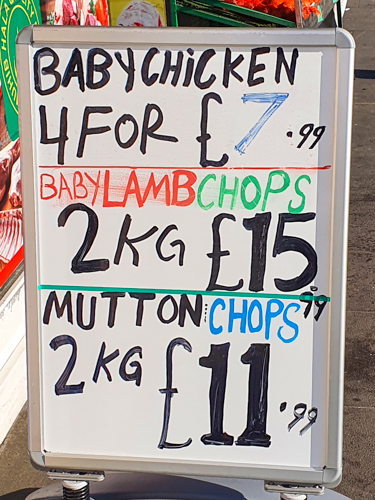 BABYCHICKEN
4 FOR £7.99
BABYLAMBCHOPS
2KG £15.99
MUTTON CHOPS
2KG £11.99